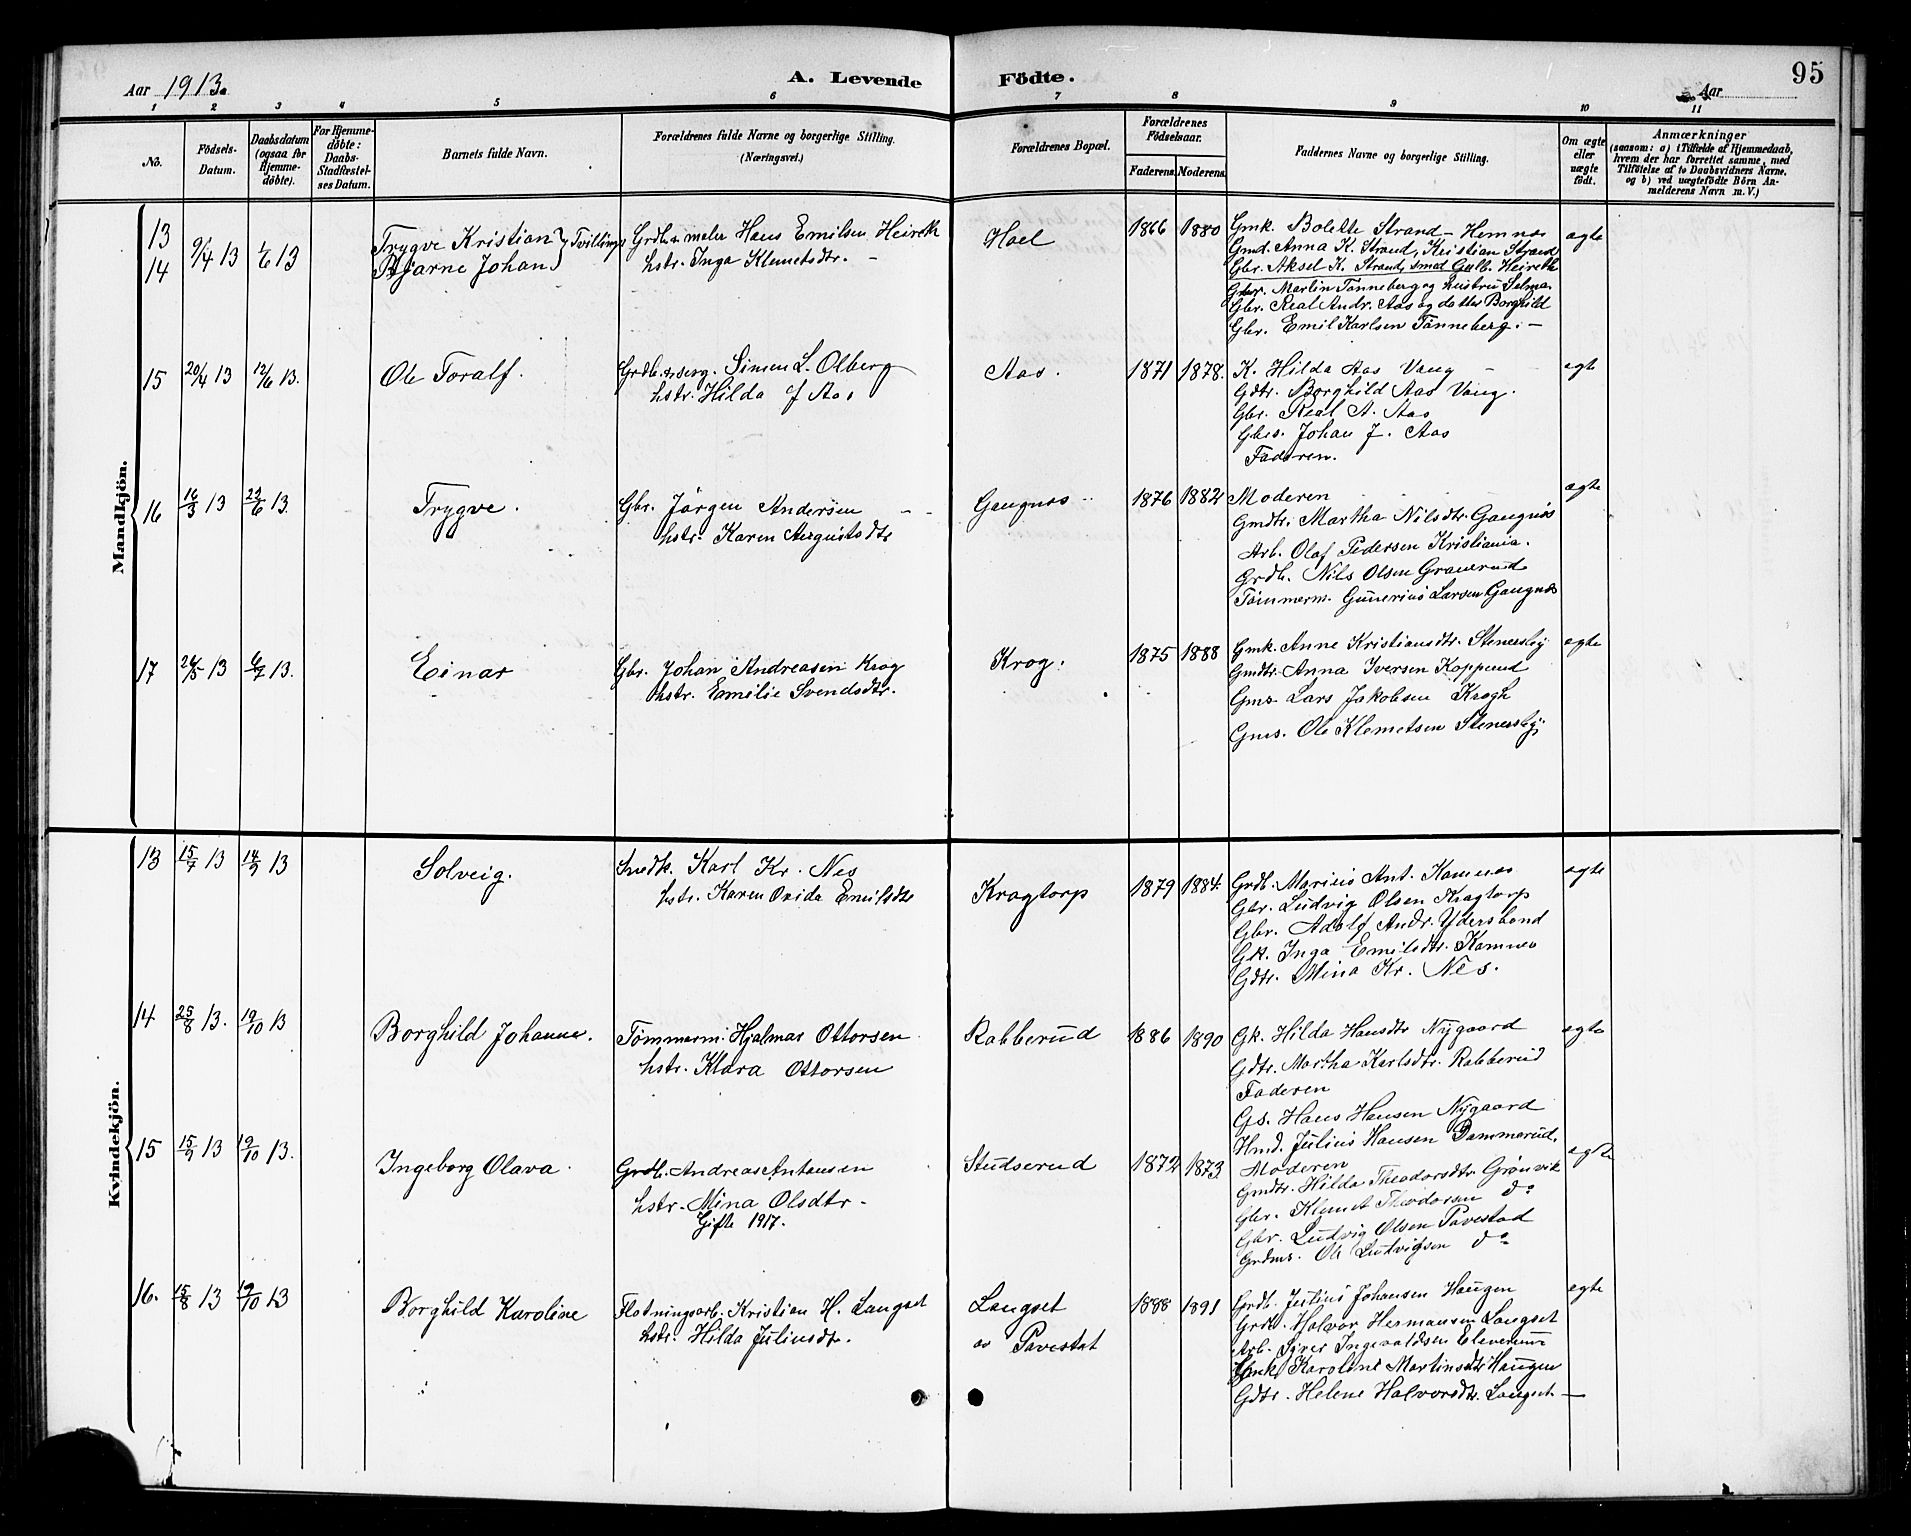 Aar 1913.
A. Levende Födte.
95
Aar
1 2 3 4 5 6 7 8 9 10 11
No.
Födsels-Datum.
Daabsdatum (ogsaa for Hjemme-döbte).
For Hjemme-döbte: Daabs-Stadfæstel-ses Datum.
Barnets fulde Navn.
Forældrenes fulde Navne og borgerlige Stilling. (Næringsvei.)
Forældrenes Bopæl.
Forældrenes Födselsaar.
Faderens. Moderens.
Faddernes Navne og borgerlige Stilling.
Om ægte eller uægte födt.
Anmærkninger
(saasom: a) i Tilfælde af Hjemmedaab,
hvem der har forrettet samme, med
Tilföielse af to Daabsvidners Navne,
og b) ved uægtefödte Börn An-
melderens Navn m. V.)
Mandkjön.
13
14
9/4 13
1/6 13
Trygve Kristian } Tvillinger
Bjarne Johan }
Grdb. & maler Hans Emilsen Heireth
hstr. Inga Klemetsdtr. -
Hoel
1866 1880
Gmk. Bolette Strand - Hemnes
Gmd. Anna K. Strand, Kristian Strand
Gbr. Aksel K. Strand, smed Gulb. Heireth
Gbr. Martin Tønneberg og hustru Selma
Gbr. Real Andr. Aas og datter Borghild
Gbr. Emil Karlsen Tønneberg. -
ægte
15 20/4 13 12/6 13.
Ole Toralf.
Grdb. & serg. Simen L. Olberg
hstr. Hilda J Aas
Aas.
1871 1878.
K. Hilda Aas Vang -
Gdtr. Borghild Aas Vang.
Gbr. Real A. Aas
Gbes. Johan J. Aas
Faderen.
egte
16 16/3 13 22/6 13.
Trygve.
Gbr. Jörgen Andersen
hstr. Karen Augustsdtr
Gangnes
1876 1882
Moderen
Gmdtr. Martha Nilsdtr. Gangnes
Arb. Olaf Pedersen Kristiania.
Grdb. Nils Olsen Graverud
Tømmerm. Gunerius Larsen Gangnes
ægte
17 26/5 13 6/7 13.
Einar
Gbr. Johan Andreasen Krog
hstr. Emilie Svendsdtr.
Krog.
1875 1888
Gmk. Anne Kristiansdtr. Stenersby
Gmdtr. Anna Iversen Kopperud
Gms. Lars Jakobsen Krogh
Gms. Ole Klemetsen Stenersby
ægte
Kvindekjön.
13 15/7 13 14/9 13
Solveig.
Snedk. Karl Kr. Nes
hstr. Karen Ovida Emilsdtr
Kragtorp
1879 1884.
Grdb. Marius Ant. Kamnes
Gbr. Ludvig Olsen Kragtorp
Gbr. Adolf Andr. Ydersbond
Gk. Inga Emilsdtr. Kamnes
Gdtr. Mina Kr. Nes.
ægte
14 25/8 13. 19/10 13
Borghild Johanne.
Tømmerm. Hjalmar Ottorsen
hstr. Klara Ottorsen
Rabberud
1886 1890
Gk. Hilda Hansdtr Nygaard
Gdtr. Martha Karlsdtr. Rabberud
Faderen
Gs. Hans Hansen Nygaard
Hmd. Julius Hansen Dammerud.
egte
15 15/9 13 19/10 13.
Ingeborg Olava.
Grdb. Andreas Antonsen
hstr. Mina Olsdtr -
Gifte 1917.
Studserud
1872 1873
Moderen
Gmdtr. Hilda Theodorsdtr Grønvik
Gbr. Klemet Theodorsen do
Gbr. Ludvig Olsen Pavestad
Grdms. Ole Ludvigsen do
egte
16. 15/8 13 19/10 13
Borghild Karoline
Flotningsarb. Kristian H. Langset
hstr. Hilda Juliusdtr.
Langset
av Pavestat
1888 1891
Grdb. Julius Johansen Haugen
Grdb. Halvor Hermansen Langset
Arb. Syver Ingvaldsen
Gmk. Karoline Martinsdtr Haugen
Gdtr. Helene Halvorsdtr. Langset -
egte